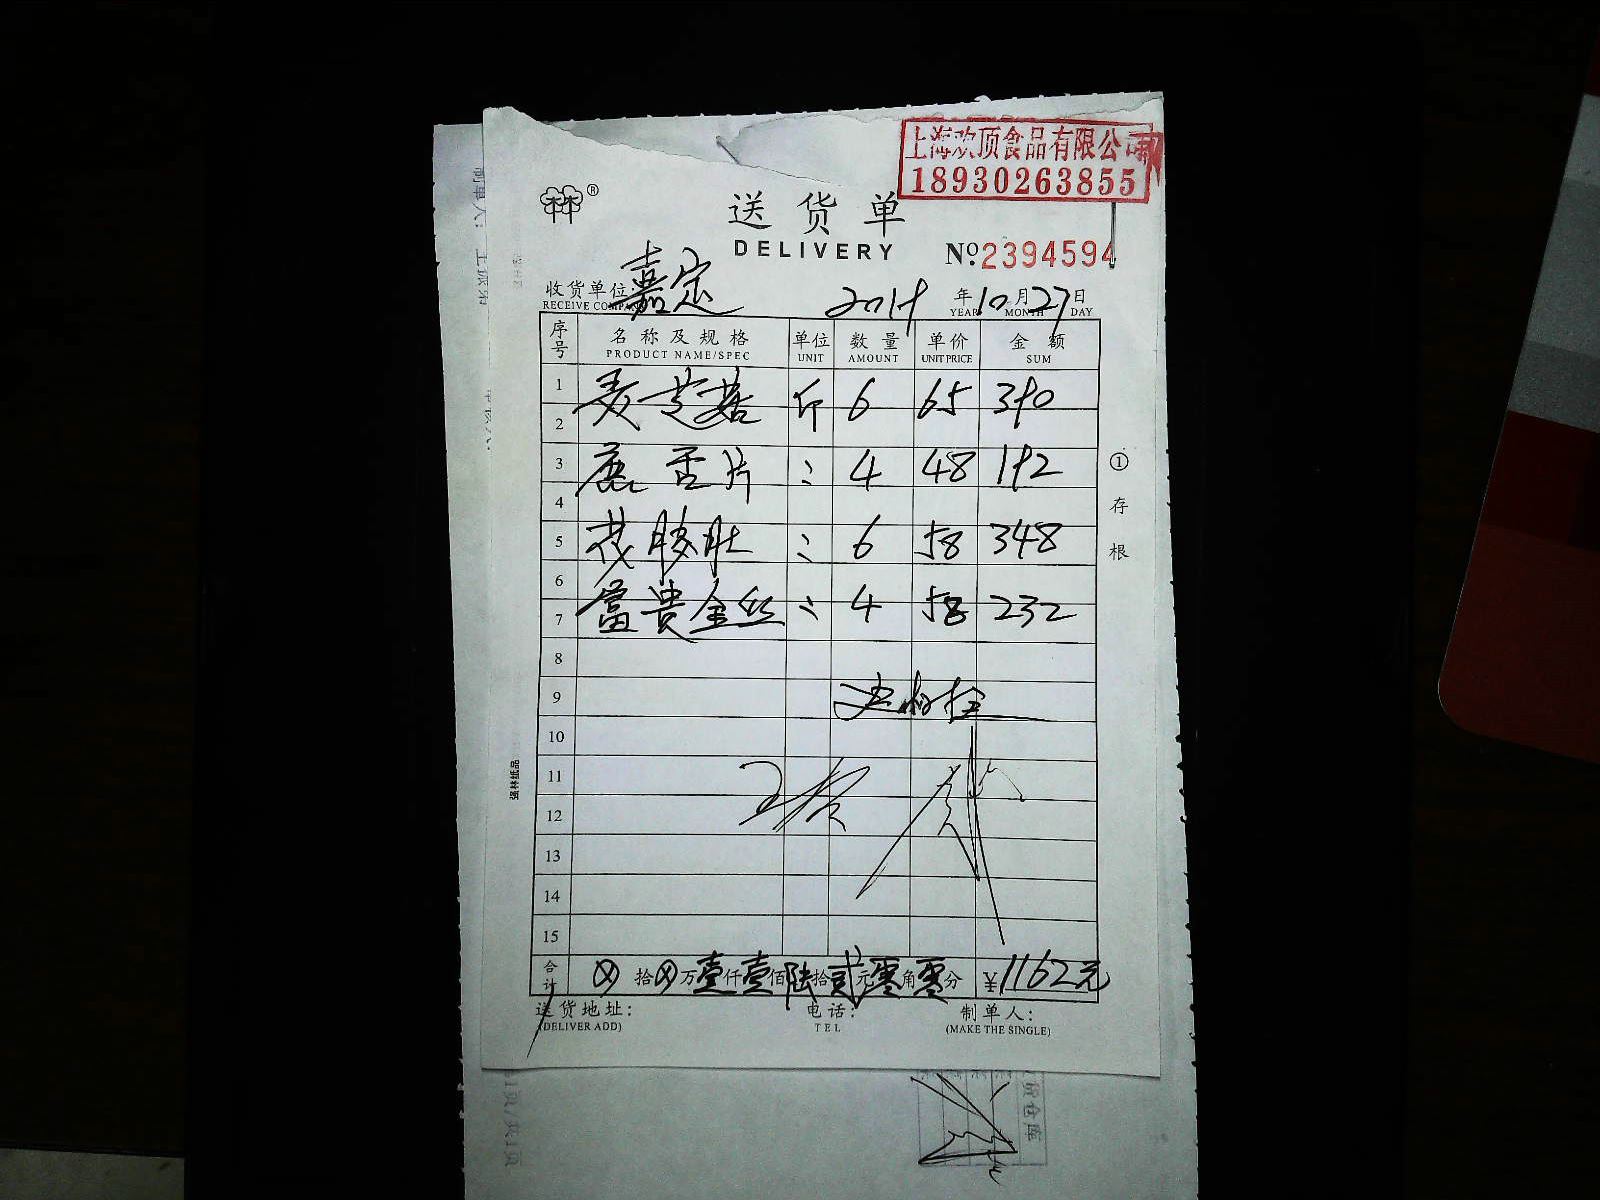 上海欢顶食品有限公司
18930263855
林®
送货单
DELIVERY
№2394594
收货单位: 嘉定 2019 年 10 月 27 日
RECEIVE COMPANY YEAR MONTH DAY
序号 名称及规格 单位 数量 单价 金额
PRODUCT NAME/SPEC UNIT AMOUNT UNIT PRICE SUM
1 斤 6 65 390
2
3 鹿舌片 : 4 48 192
4
5 6 58 348
6
7 富贵金丝 : 4 58 232
8
9
10
11
12
13
14
15
合计 ⊗ 拾 ⊗ 万 壹 仟 壹 佰 陆 拾 贰 元 零 角 零 分 ¥1162元
送货地址: 电话: 制单人:
(DELIVER ADD) TEL (MAKE THE SINGLE)
① 存根
强林纸品
制单人:
货仓库